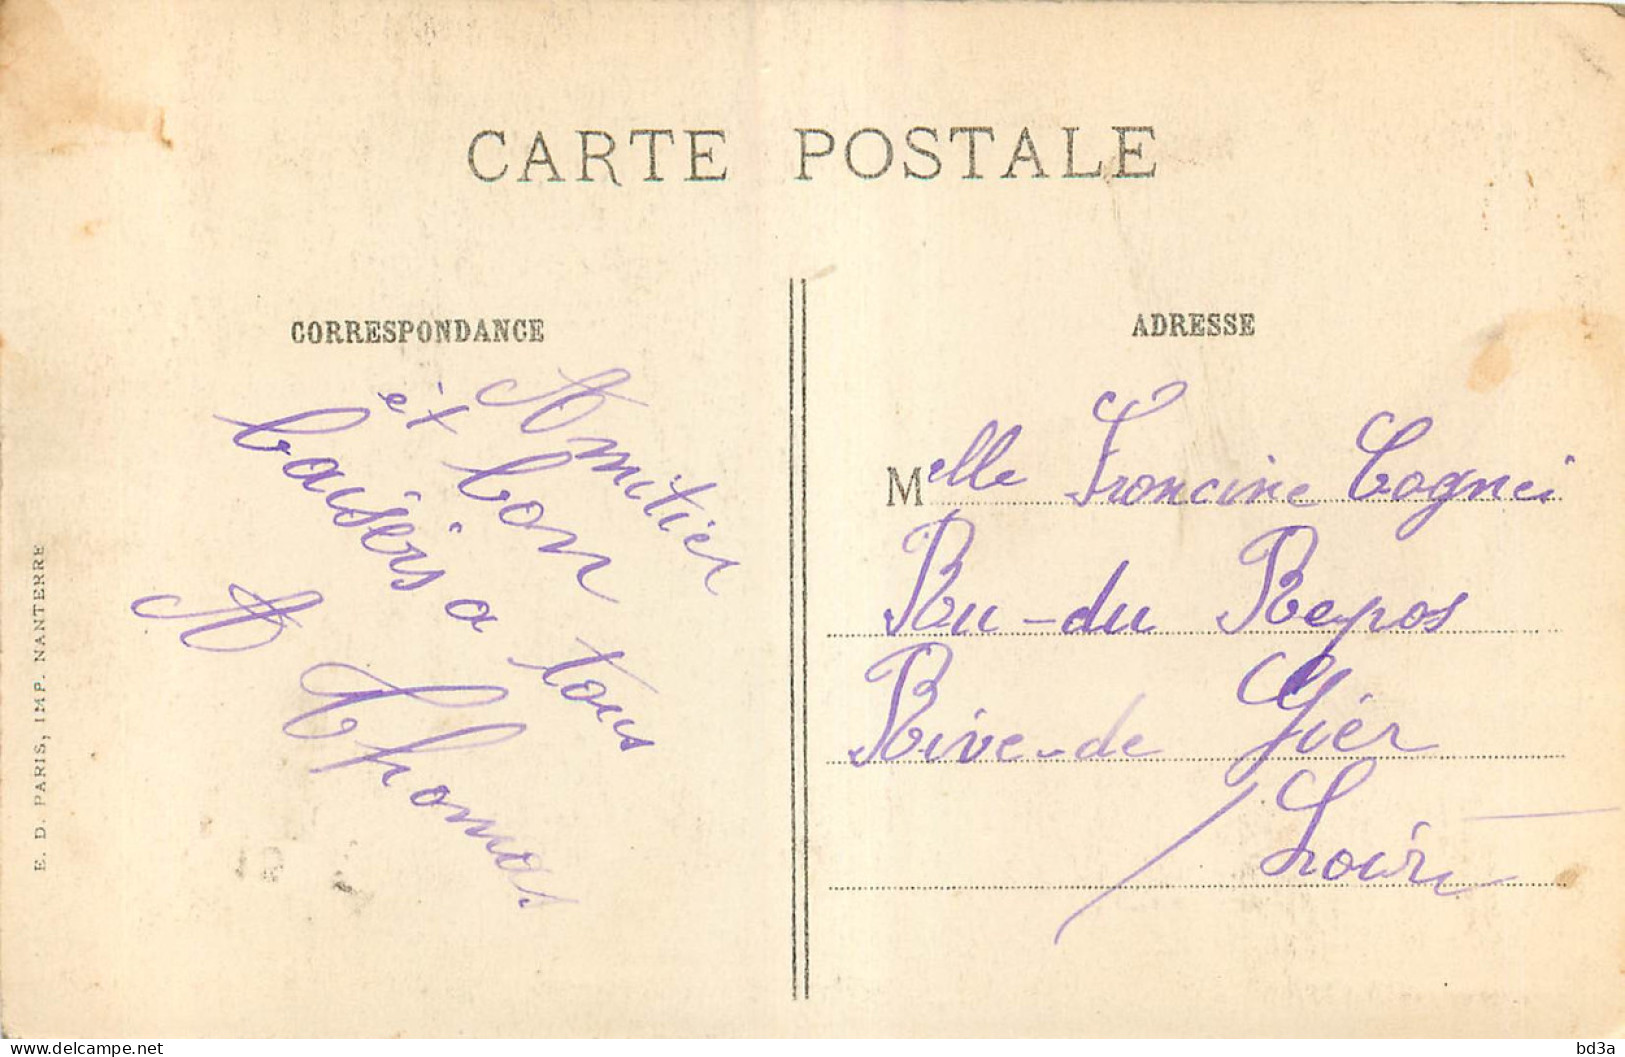 CARTE POSTALE
CORRESPONDANCE
Amitier
et bon
baisérs a tous
A Thomas
ADRESSE
Melle Francine Cognei
Ru-du Repos
Rive-de Giér
Loire
E. D. PARIS, IMP. NANTERRE
delcampe.net
bd3a